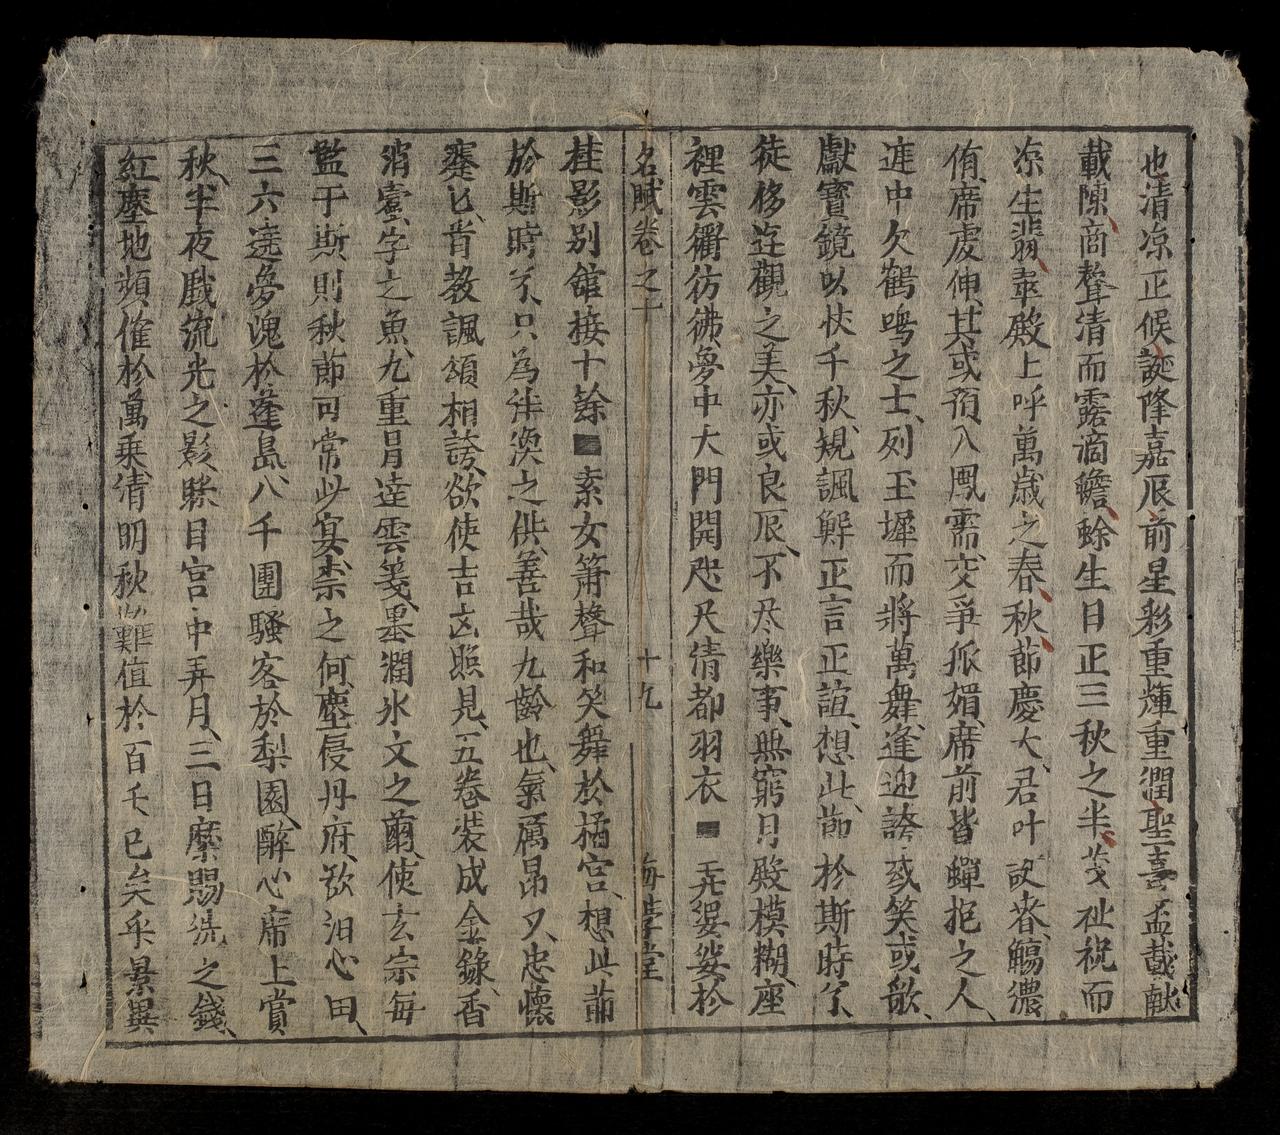 也清凉正候誕降嘉辰前星彩重輝重潤聖喜孟戴献
載陳商聲清而露滴蟾蜍生日正三秋之半茭祉祝而
凉生翡翠殿上呼萬歲之春秋節慶大君叶諛春觴濃
侑席虔伸其或預入鳳需交爭孤媚席前皆蟬抱之人
庭中欠鶴鳴之士列玉墀而將萬舞逢迎誇或笑或歌
獻寶鏡以枤千秋規諷鮮正言正誼想此節於斯時尒
徒侈遊觀之美亦或良辰不尽樂事無窮月殿模糊座
裡雲衢彷彿夢中大門開咫尺清都羽衣■兂婆娑於
名賦卷之 十九 海學堂
桂影別舘接十餘■素女簫聲和笑舞於橘宮想此節
於斯時尒只為泮渙之供善哉九齡也氣厲昂又忠懷
蹇匕肯教諷頌相誇欲使吉凶照見五卷裝成金錄香
消蠹字之魚九重胃達雲箋墨潤氷文之繭使玄宗每
監于斯則秋節可常此宴柰之何塵侵丹府欲汨心田
三六遠夢魂於蓬島八千團騷客於梨園醉心席上賞
秋半夜戲流光之影縢目宮中弄月三日縻賜洗之錢
紅塵地頻催於萬乗清明秋難值於百千已矣乎景異